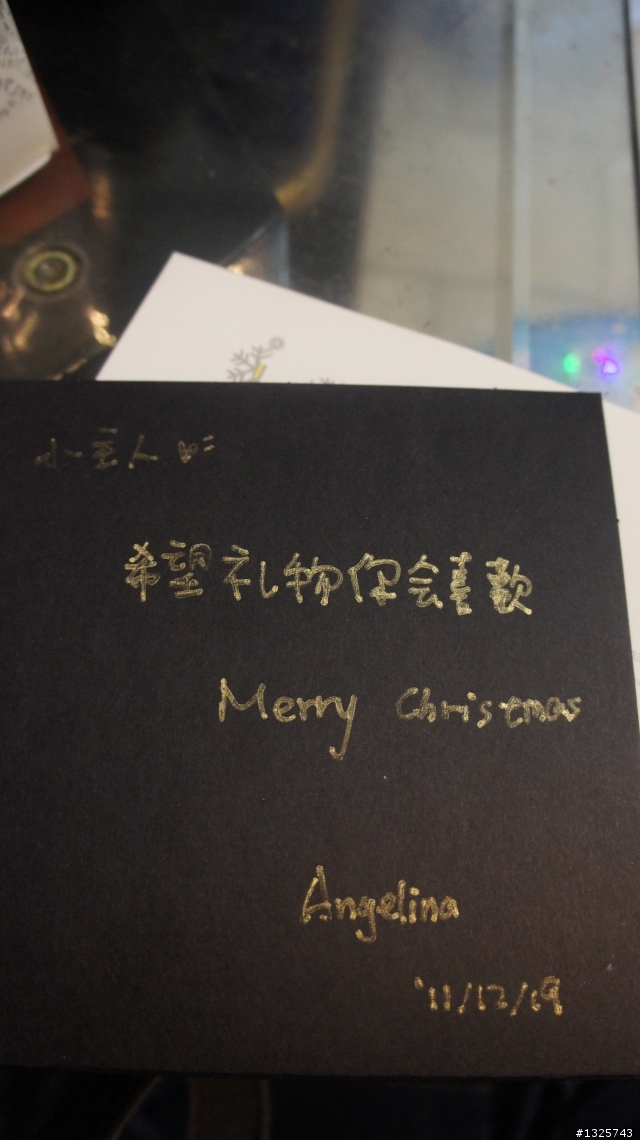 小主人
希望礼物你会喜歡
Merry Christmas
Angelina
'11/12/19
#1325743